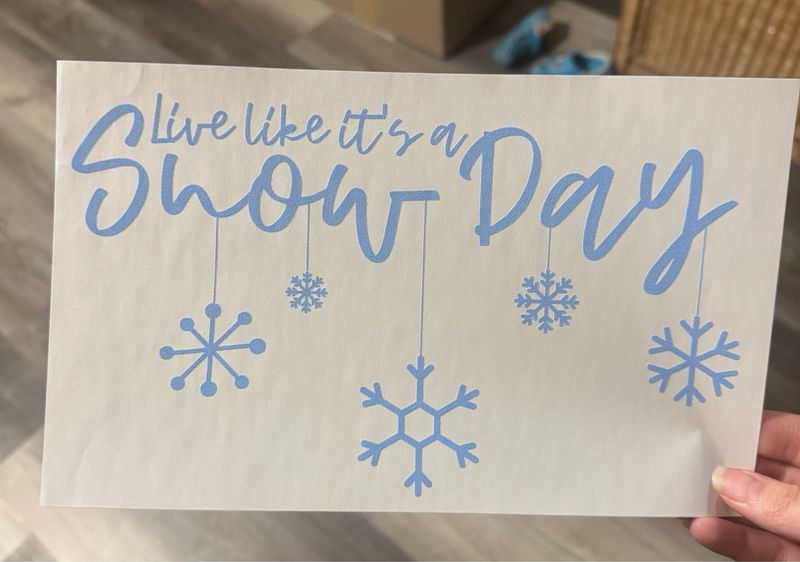 Live like it's a
Snow Day